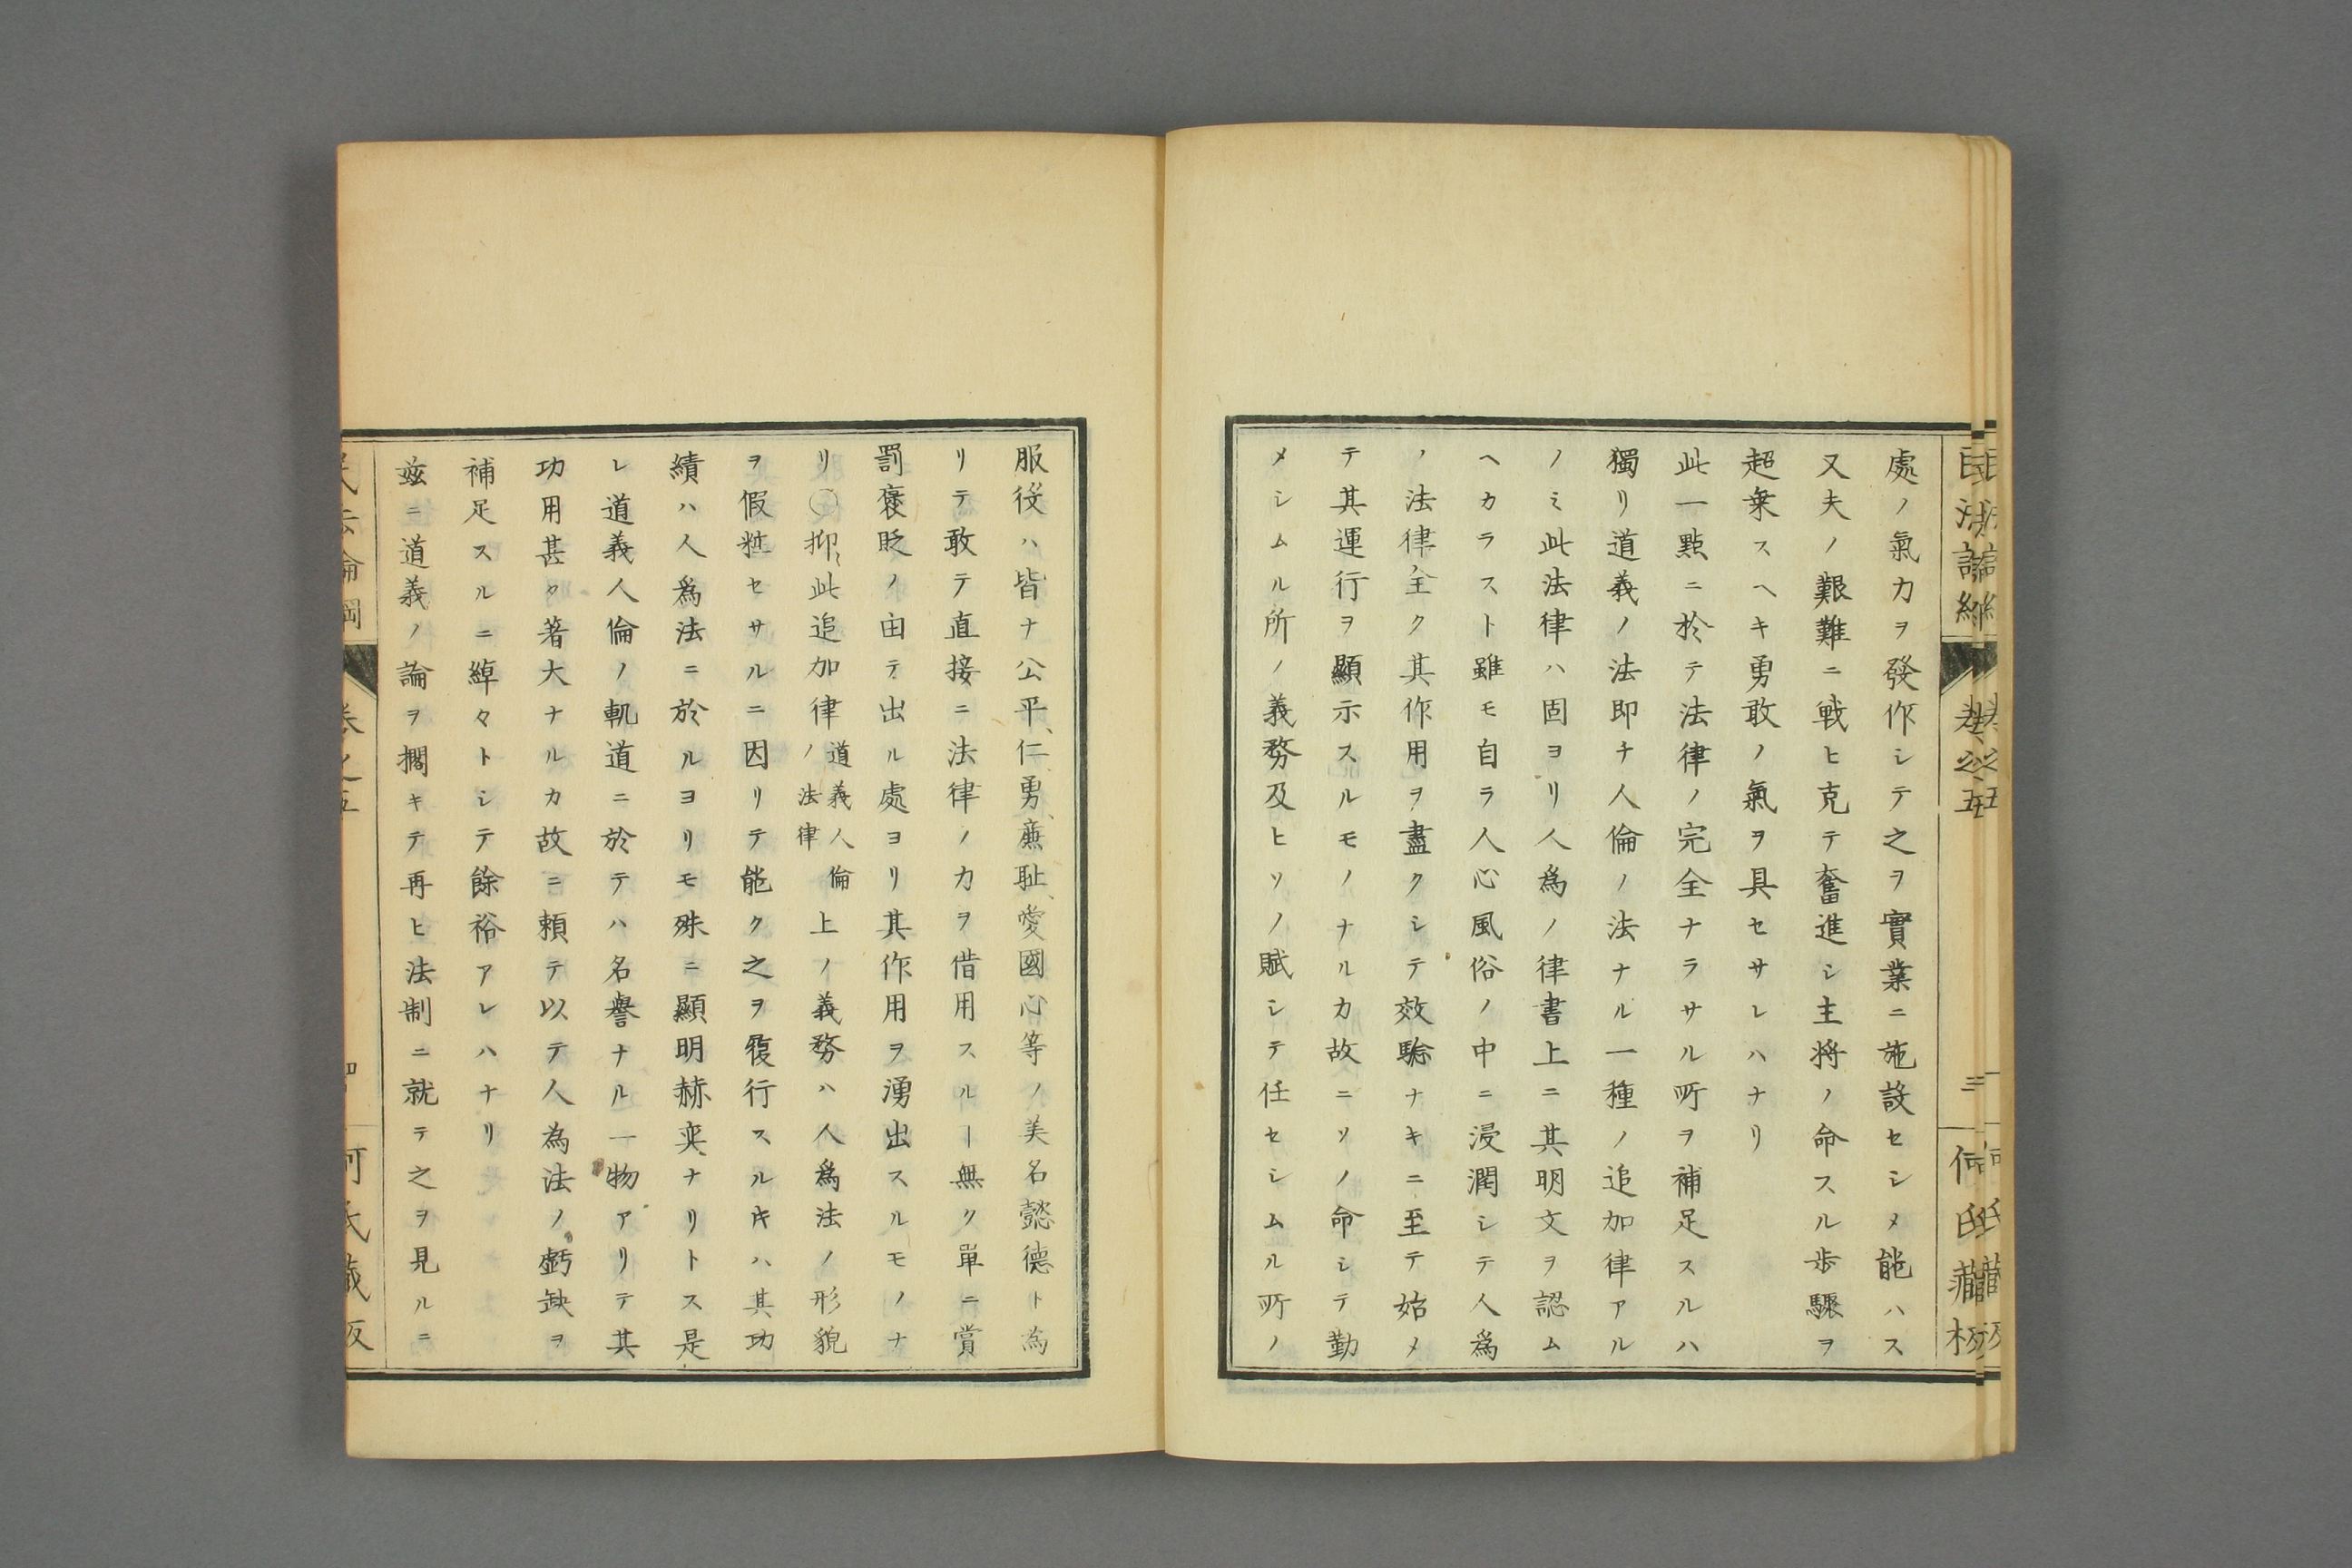 處ノ氣力ヲ發作シテ之ヲ實業ニ施設セシメ能ハス
又夫ノ艱難ニ戰ヒ克テ奮進シ主將ノ命スル步驟ヲ
超乗スヘキ勇敢ノ氣ヲ具セサレハナリ
此一點ニ於テ法律ノ完全ナラサル所ヲ補足スルハ
獨リ道義ノ法即チ人倫ノ法ナル一種ノ追加律アル
ノミ此法律ハ固ヨリ人爲ノ律書上ニ其明文ヲ認ム
ヘカラスト雖モ自ラ人心風俗ノ中ニ浸潤シテ人爲
ノ法律全ク其作用ヲ盡クシテ效驗ナキニ至テ始メ
テ其運行ヲ顯示スルモノナルカ故ニソノ命シテ勤
メシムル所ノ義務及ヒソノ賦シテ任セシムル所ノ
服役ハ皆ナ公平、仁勇、廉耻、愛國心等ノ美名懿德ト為
リテ敢テ直接ニ法律ノカヲ借用スルヿ無ク單ニ賞
罰褒貶ノ由テ出ル處ヨリ其作用ヲ湧出スルモノナ
リ〇抑〻此追加律道義人倫ノ法律上ノ義務ハ人爲法ノ形貌
ヲ假粧セサルニ因リテ能ク之ヲ履行スルキハ其功
績ハ人爲法ニ於ルヨリモ殊ニ顯明赫奕ナリトス是
レ道義人倫ノ軌道ニ於テハ名譽ナル一物アリテ其
功用甚タ著大ナルカ故ニ頼テ以テ人為法ノ虧缺ヲ
補足スルニ綽々トシテ餘裕アレハナリ
玆ニ道義ノ論ヲ擱キテ再ヒ法制ニ就テ之ヲ見ルニ
卷之五